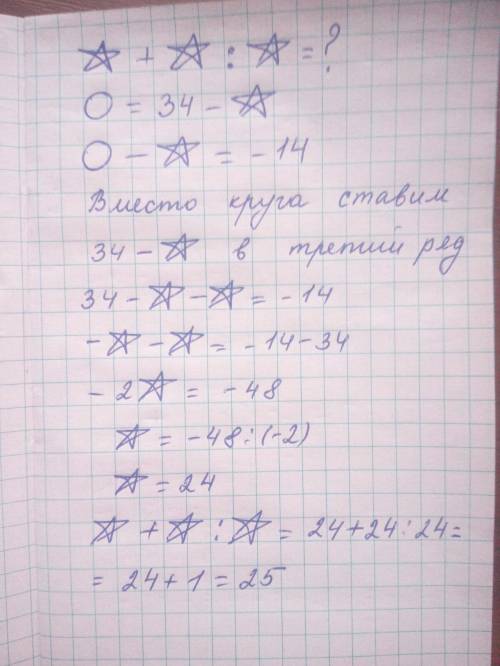 ☆ + ☆ : ☆ = ?
○ = 34 - ☆
○ - ☆ = - 14
Вместо круга ставим
34 - ☆ в третий ряд
34 - ☆ - ☆ = - 14
- ☆ - ☆ = - 14 - 34
- 2☆ = - 48
☆ = - 48 : (-2)
☆ = 24
☆ + ☆ : ☆ = 24 + 24 : 24 =
= 24 + 1 = 25